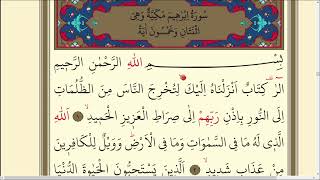 سُورَةُ اِبْرٰهِيمَ مَكِّيَّةٌ وَهِيَ
اثْنَتَانِ وَخَمْسُونَ اٰيَةً
بِسْــــمِ اللّٰهِ الرَّحْمٰنِ الرَّحِيمِ
الٓرٰ كِتَابٌ اَنْزَلْنَاهُ اِلَيْكَ لِتُخْرِجَ النَّاسَ مِنَ الظُّلُمَاتِ
اِلَى النُّورِ بِاِذْنِ رَبِّهِمْ اِلٰى صِرَاطِ الْعَزِيزِ الْحَمِيدِۙ ﴿١﴾ اَللّٰهِ
الَّذِى لَهُ مَا فِى السَّمٰوَاتِ وَمَا فِى الْاَرْضِۜ وَوَيْلٌ لِلْكَافِرِينَ
مِنْ عَذَابٍ شَدِيدٍۙ ﴿٢﴾ اَلَّذِينَ يَسْتَحِبُّونَ الْحَيٰوةَ الدُّنْيَا